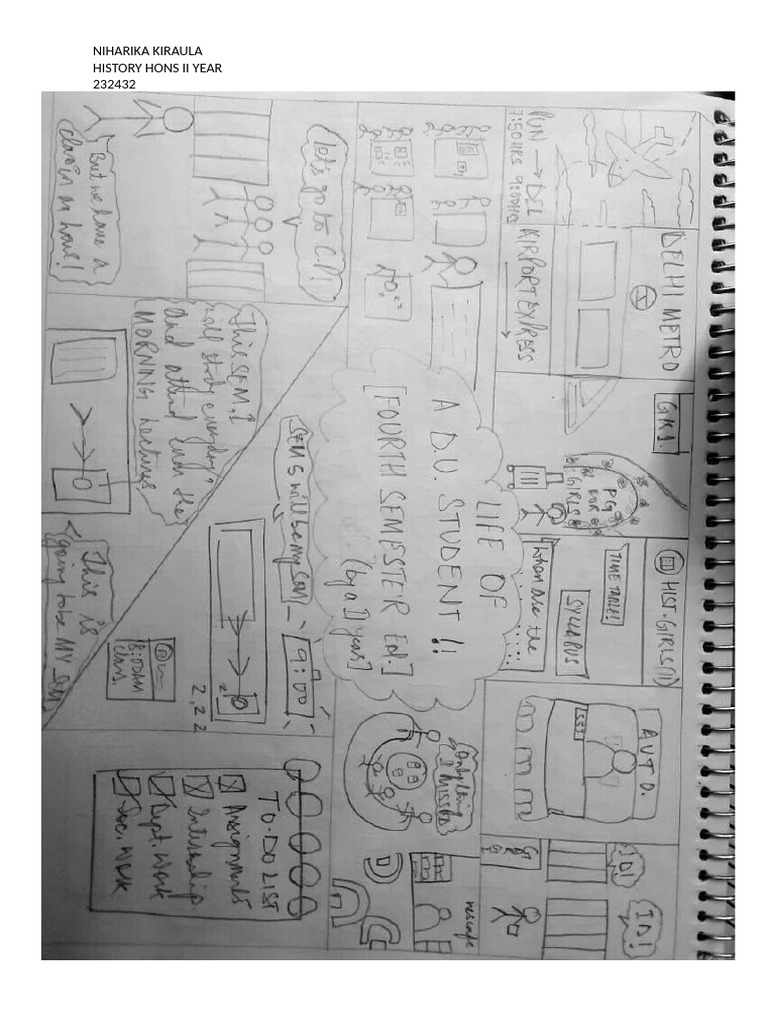 NIHARIKA KIRAULA
HISTORY HONS II YEAR
232432
PUN → DEL
7:50HRS 9:00HRS
DELHI METRO
AIRPORT EXPRESS
→
GK1.
PG
FOR
GIRLS
HIST-GIRLS(11)
TIME TABLE!
SYLLABUS
when are the
AUTO.
ID!
ID!
LIFE OF
A D.U. STUDENT!!
[FOURTH SEMESTER Ed.]
(by a II year)
Only thing
I Missed
nescafe
let's go to C.P!
But we have a
class in an hour!
This SEM, I
will study everyday,
and attend even the
MORNING lectures
This is
going to be MY SEM
SEM 5 will be my SEM
9:00
8:00AM
class
z,z,z
TO-DO LIST
Assignments
Internship
Dept. Work
Soc. Work